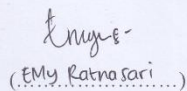 (EMy Ratnasari)